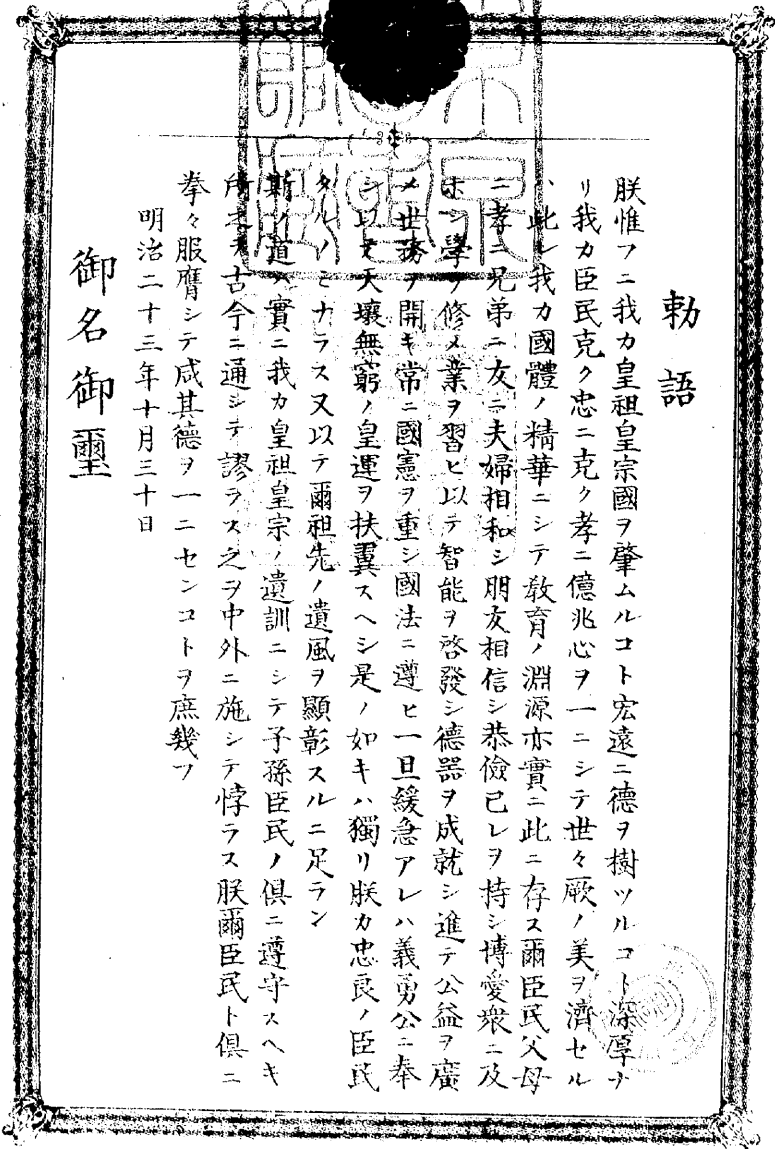 勅語
朕惟フニ我カ皇祖皇宗國ヲ肇ムルコト宏遠ニ德ヲ樹ツルコト深厚ナ
リ我カ臣民克ク忠ニ克ク孝ニ億兆心ヲ一ニシテ世々厥ノ美ヲ濟セル
ハ此レ我カ國體ノ精華ニシテ敎育ノ淵源亦實ニ此ニ存ス爾臣民父母
ニ孝ニ兄弟ニ友ニ夫婦相和シ朋友相信シ恭儉己レヲ持シ博愛衆ニ及
ホシ學ヲ修メ業ヲ習ヒ以テ智能ヲ啓發シ德器ヲ成就シ進テ公益ヲ廣
メ世務ヲ開キ常ニ國憲ヲ重シ國法ニ遵ヒ一旦緩急アレハ義勇公ニ奉
シ以テ天壤無窮ノ皇運ヲ扶翼スヘシ是ノ如キハ獨リ朕カ忠良ノ臣民
タルノミナラス又以テ爾祖先ノ遺風ヲ顯彰スルニ足ラン
斯ノ道ハ實ニ我カ皇祖皇宗ノ遺訓ニシテ子孫臣民ノ俱ニ遵守スヘキ
所之ヲ古今ニ通シテ謬ラス之ヲ中外ニ施シテ悖ラス朕爾臣民ト俱ニ
拳々服膺シテ咸其德ヲ一ニセンコトヲ庶幾フ
明治二十三年十月三十日
御名御璽